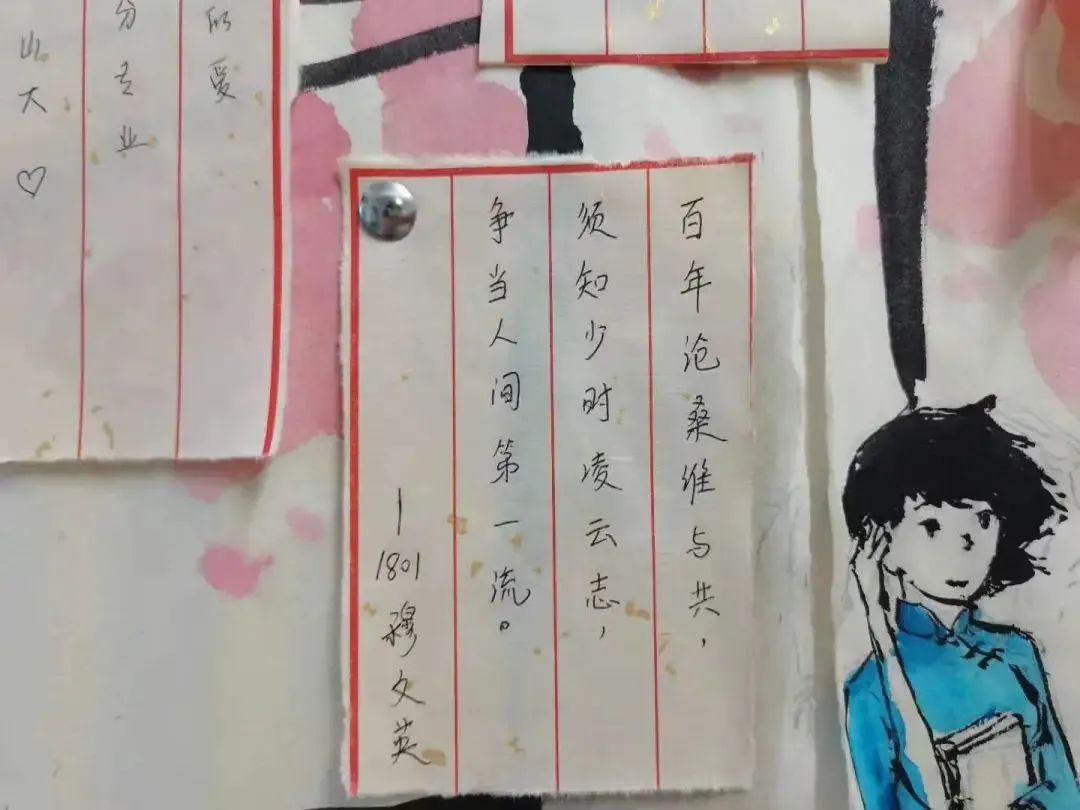 百年沧桑维与共，
须知少时凌云志，
争当人间第一流。
—1801穆文英
所爱
分专业
山大♡